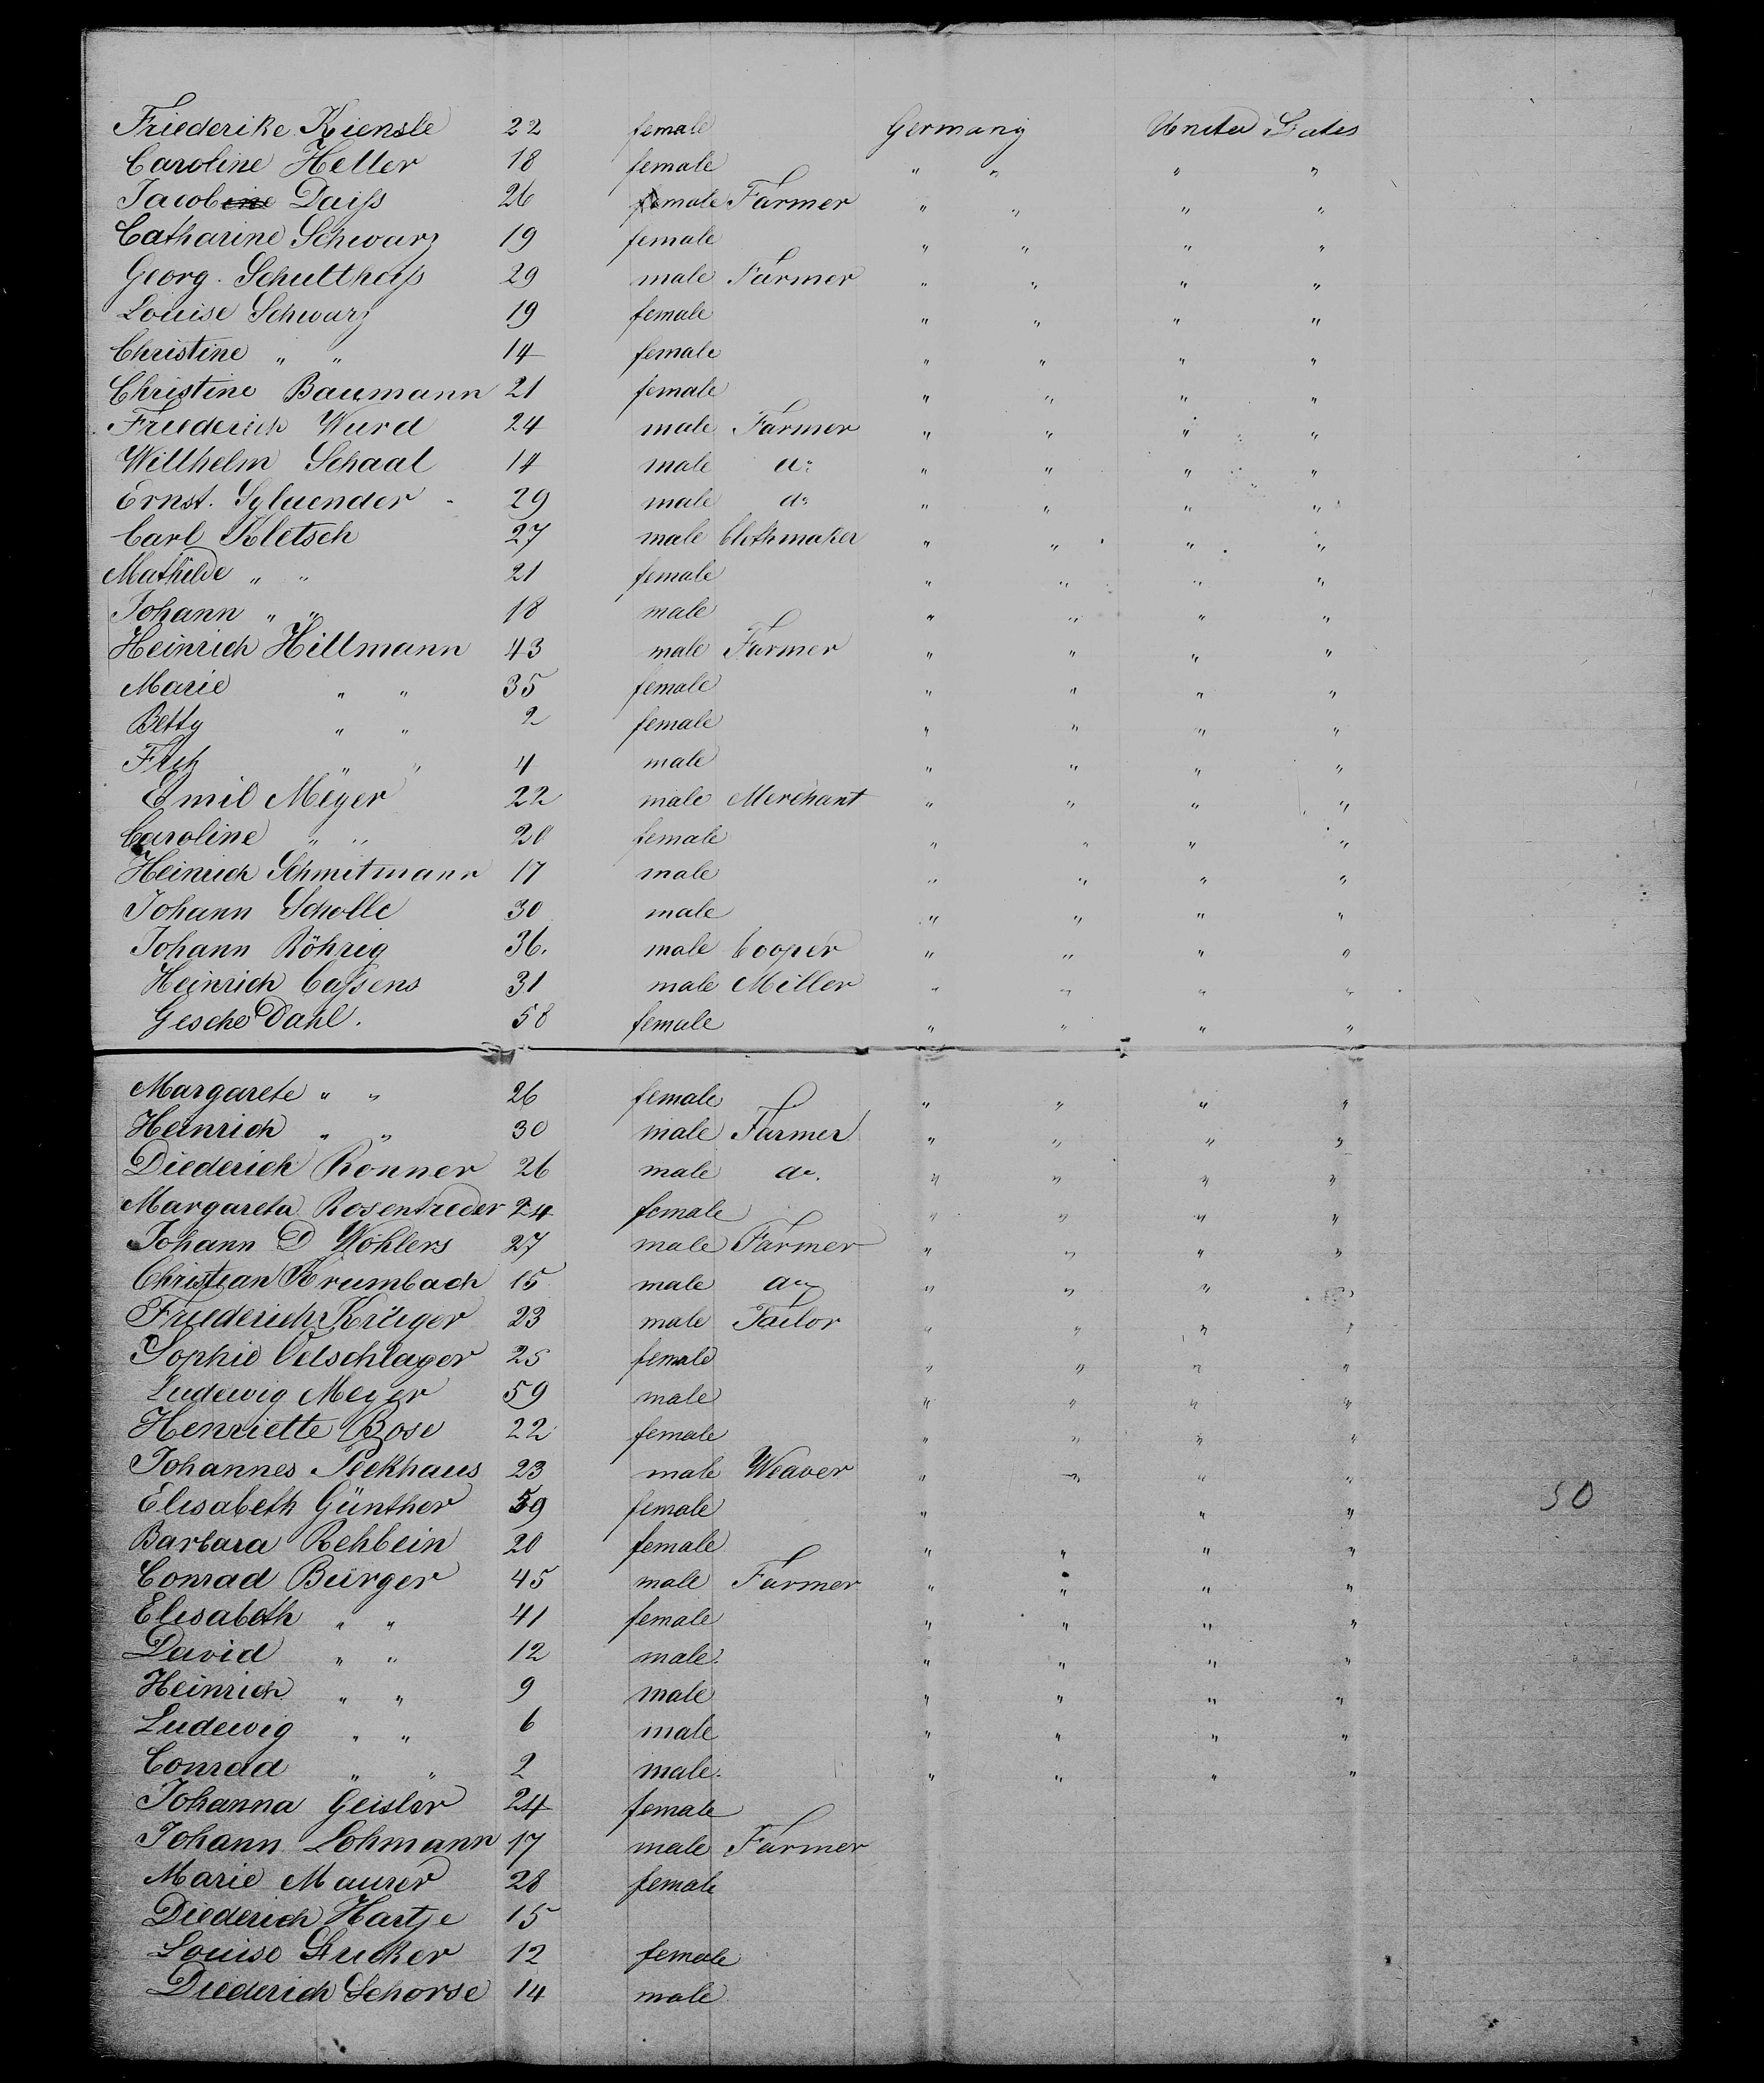 Friederike Kiensle 22 female Germany United States
Caroline Heller 18 female " " " "
Jacob Daiss 26 male Farmer " " " "
Catharine Schwarz 19 female " " " "
Georg. Schultheiss 29 male Farmer " " " "
Louise Schwarz 19 female " " " "
Christine " " 14 female " " " "
Christine Baumann 21 female " " " "
Friederich Wurd 24 male Farmer " " " "
Willhelm Schaal 14 male do " " " "
Ernst. 29 male do " " " "
Carl Kletsch 27 male Clothmaker " " " "
Mathilde " " 21 female " " " "
Johann " " 18 male " " " "
Heinrich Hillmann 43 male Farmer " " " "
Marie " " 35 female " " " "
Betty " " 2 female " " " "
" " 4 male " " " "
Emil Meyer 22 male Merchant " " " "
Caroline " " 20 female " " " "
Heinrich Schmitmann 17 male " " " "
Johann Scholle 30 male " " " "
Johann Röhrig 36. male Cooper " " " "
Heinrich Cassens 31 male Miller " " " "
Gesche Dahl. 58 female " " " "
Margarete " " 26 female " " " "
Heinrich " " 30 male Farmer " " " "
Diederich Ronner 26 male do. " " " "
Margareta Rosentreder 24 female " " " "
Johann D Wohlers 27 male Farmer " " " "
Christian Krumbach 15 male do " " " "
Friederich Krüger 23 male Tailor " " " "
Sophie Oelschlager 25 female " " " "
Ludewig Meyer 59 male " " " "
Henriette Bose 22 female " " " "
Johannes Peekhaus 23 male Weaver " " " "
Elisabeth Günther 59 female " " " 50
Barbara Rehbein 20 female " " " "
Conrad Bürger 45 male Farmer " " " "
Elisabeth " " 41 female " " " "
David " " 12 male. " " " "
Heinrich " " 9 male " " " "
Ludewig " " 6 male " " " "
Conrad " " 2 male. " " " "
Johanna Geisler 24 female
Johann Lohmann 17 male Farmer
Marie Maurer 28 female
Diederich Hartje 15
Louise Stucker 12 female
Diederich Schorse 14 male